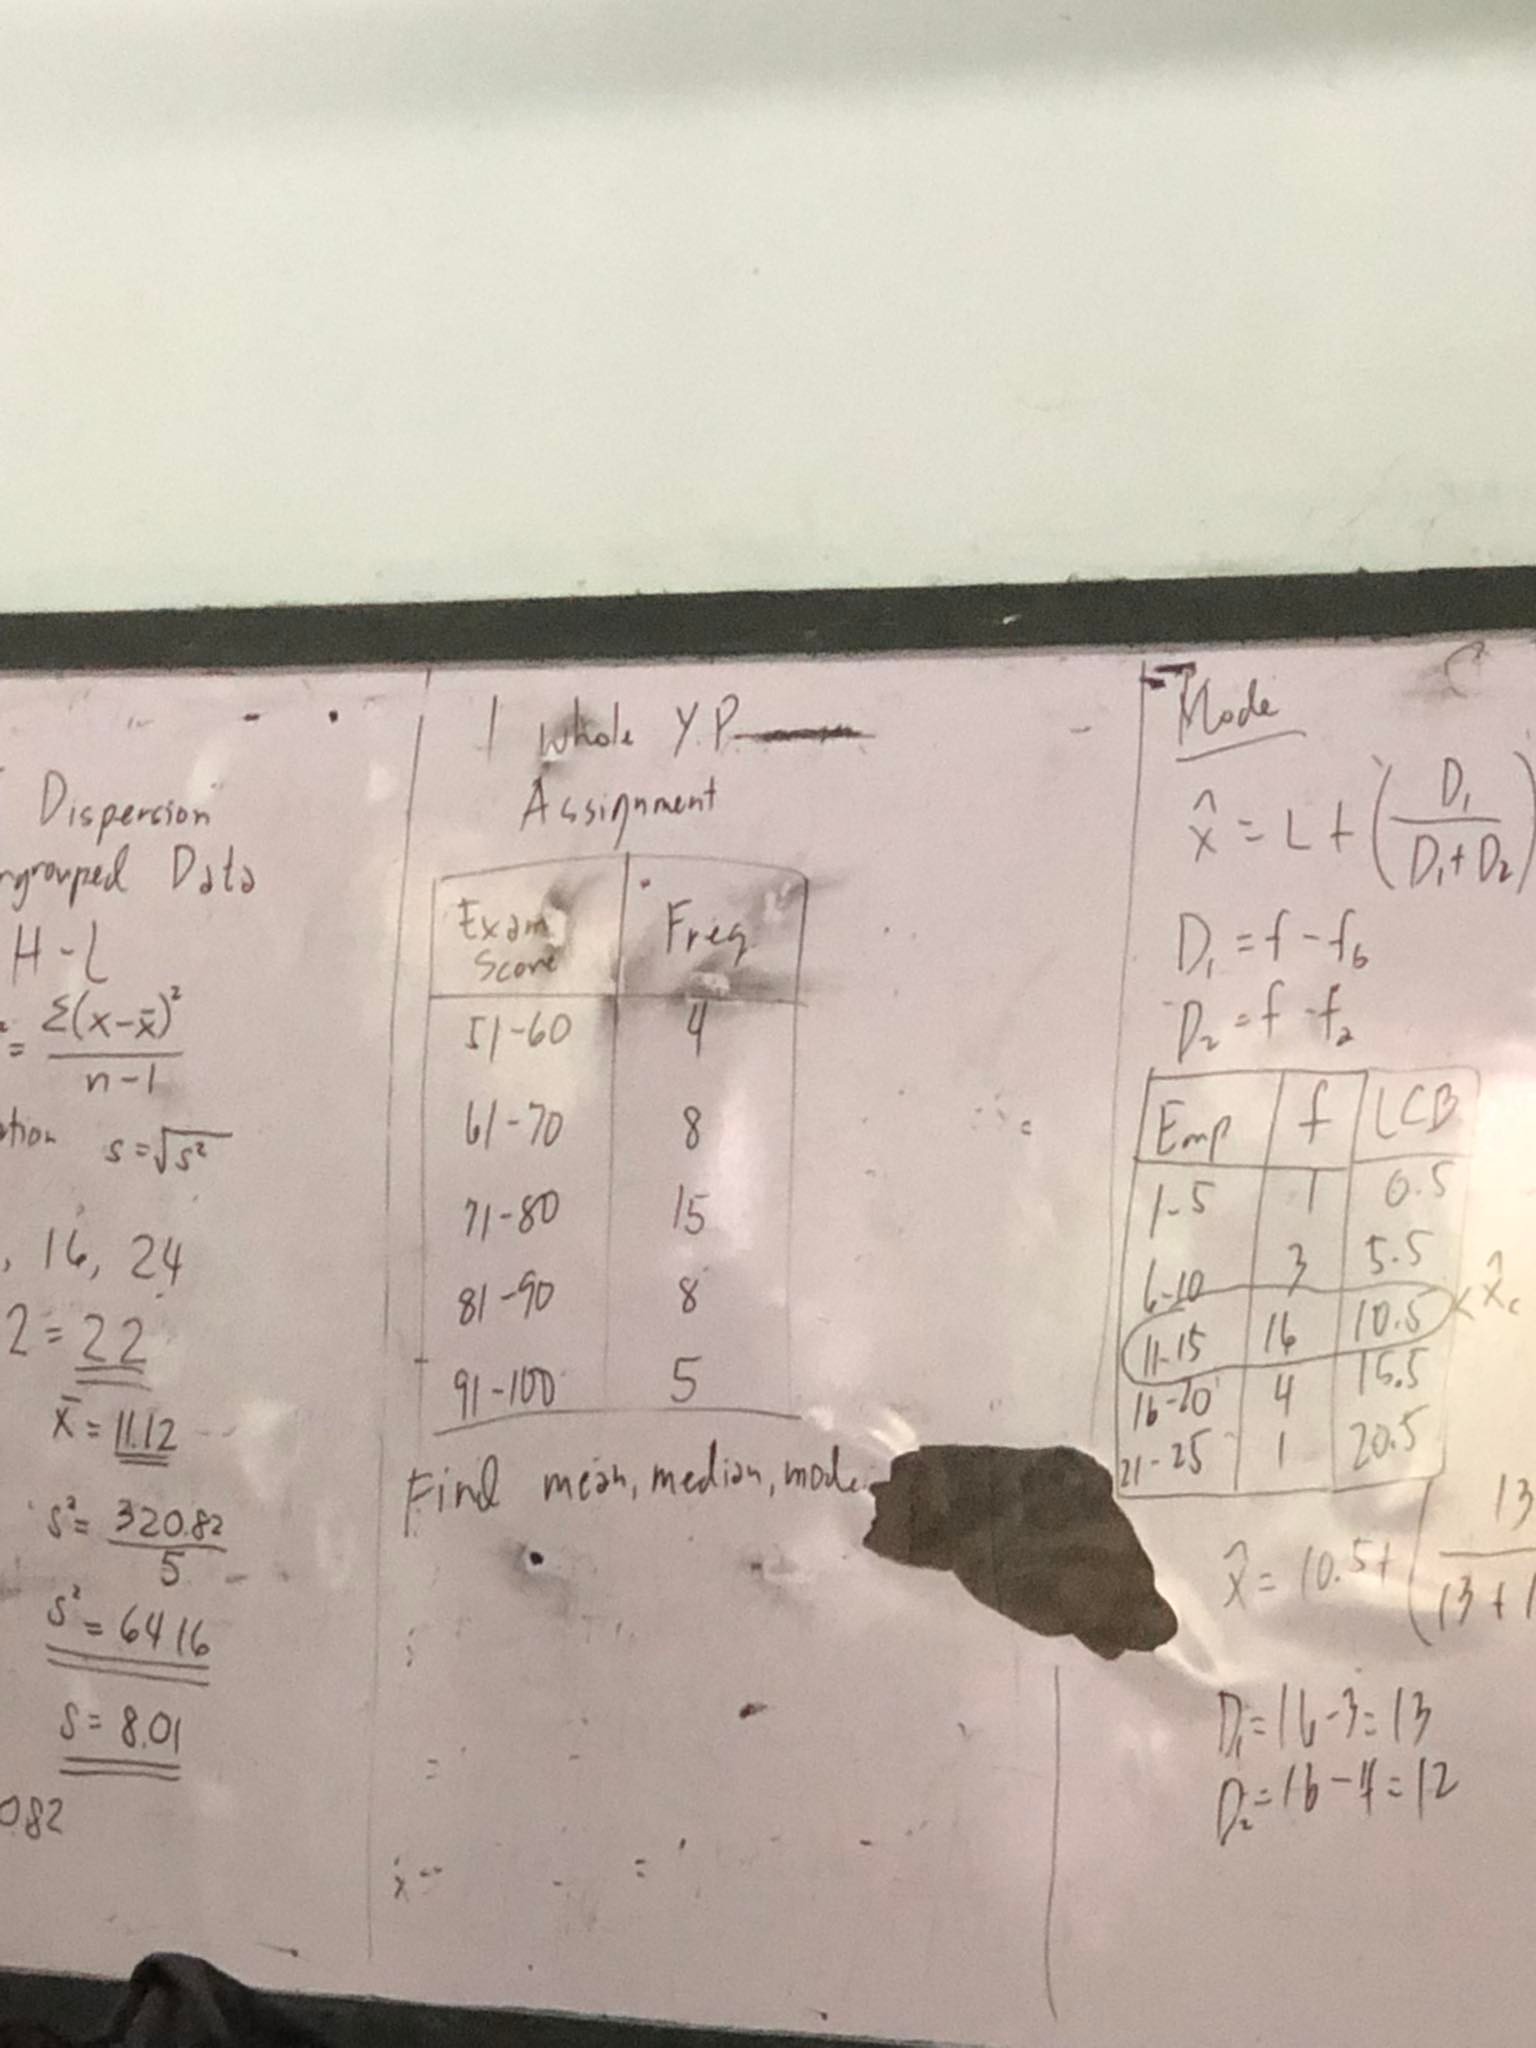 Dispersion
Data
H - L
= Σ(x-x̄)²
n-1
s = √s²
, 16, 24
2 = 22
x̄ = 11.12
s² = 320.82
5
s² = 64.16
s = 8.01
082
1 whole Y.P
Assignment
Exam Score | Freq
51-60 | 4
61-70 | 8
71-80 | 15
81-90 | 8
91-100 | 5
Find mean, median, mode
Mode
x̂ = L + (D₁
D₁ + D₂)
D₁ = f - f_b
D₂ = f - f_a
Emp | f | LCB
1-5 | 1 | 0.5
6-10 | 3 | 5.5
11-15 | 16 | 10.5
x̂c
16-20 | 4 | 15.5
21-25 | 1 | 20.5
x̂ = 10.5 + (13
13 + 1
D₁ = 16-3 = 13
D₂ = 16-4 = 12